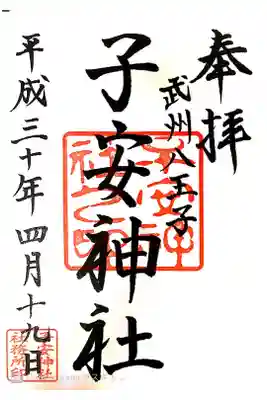 奉拝
武州八王子
子安神社
平成三十年四月十九日
子安神社
社務所印